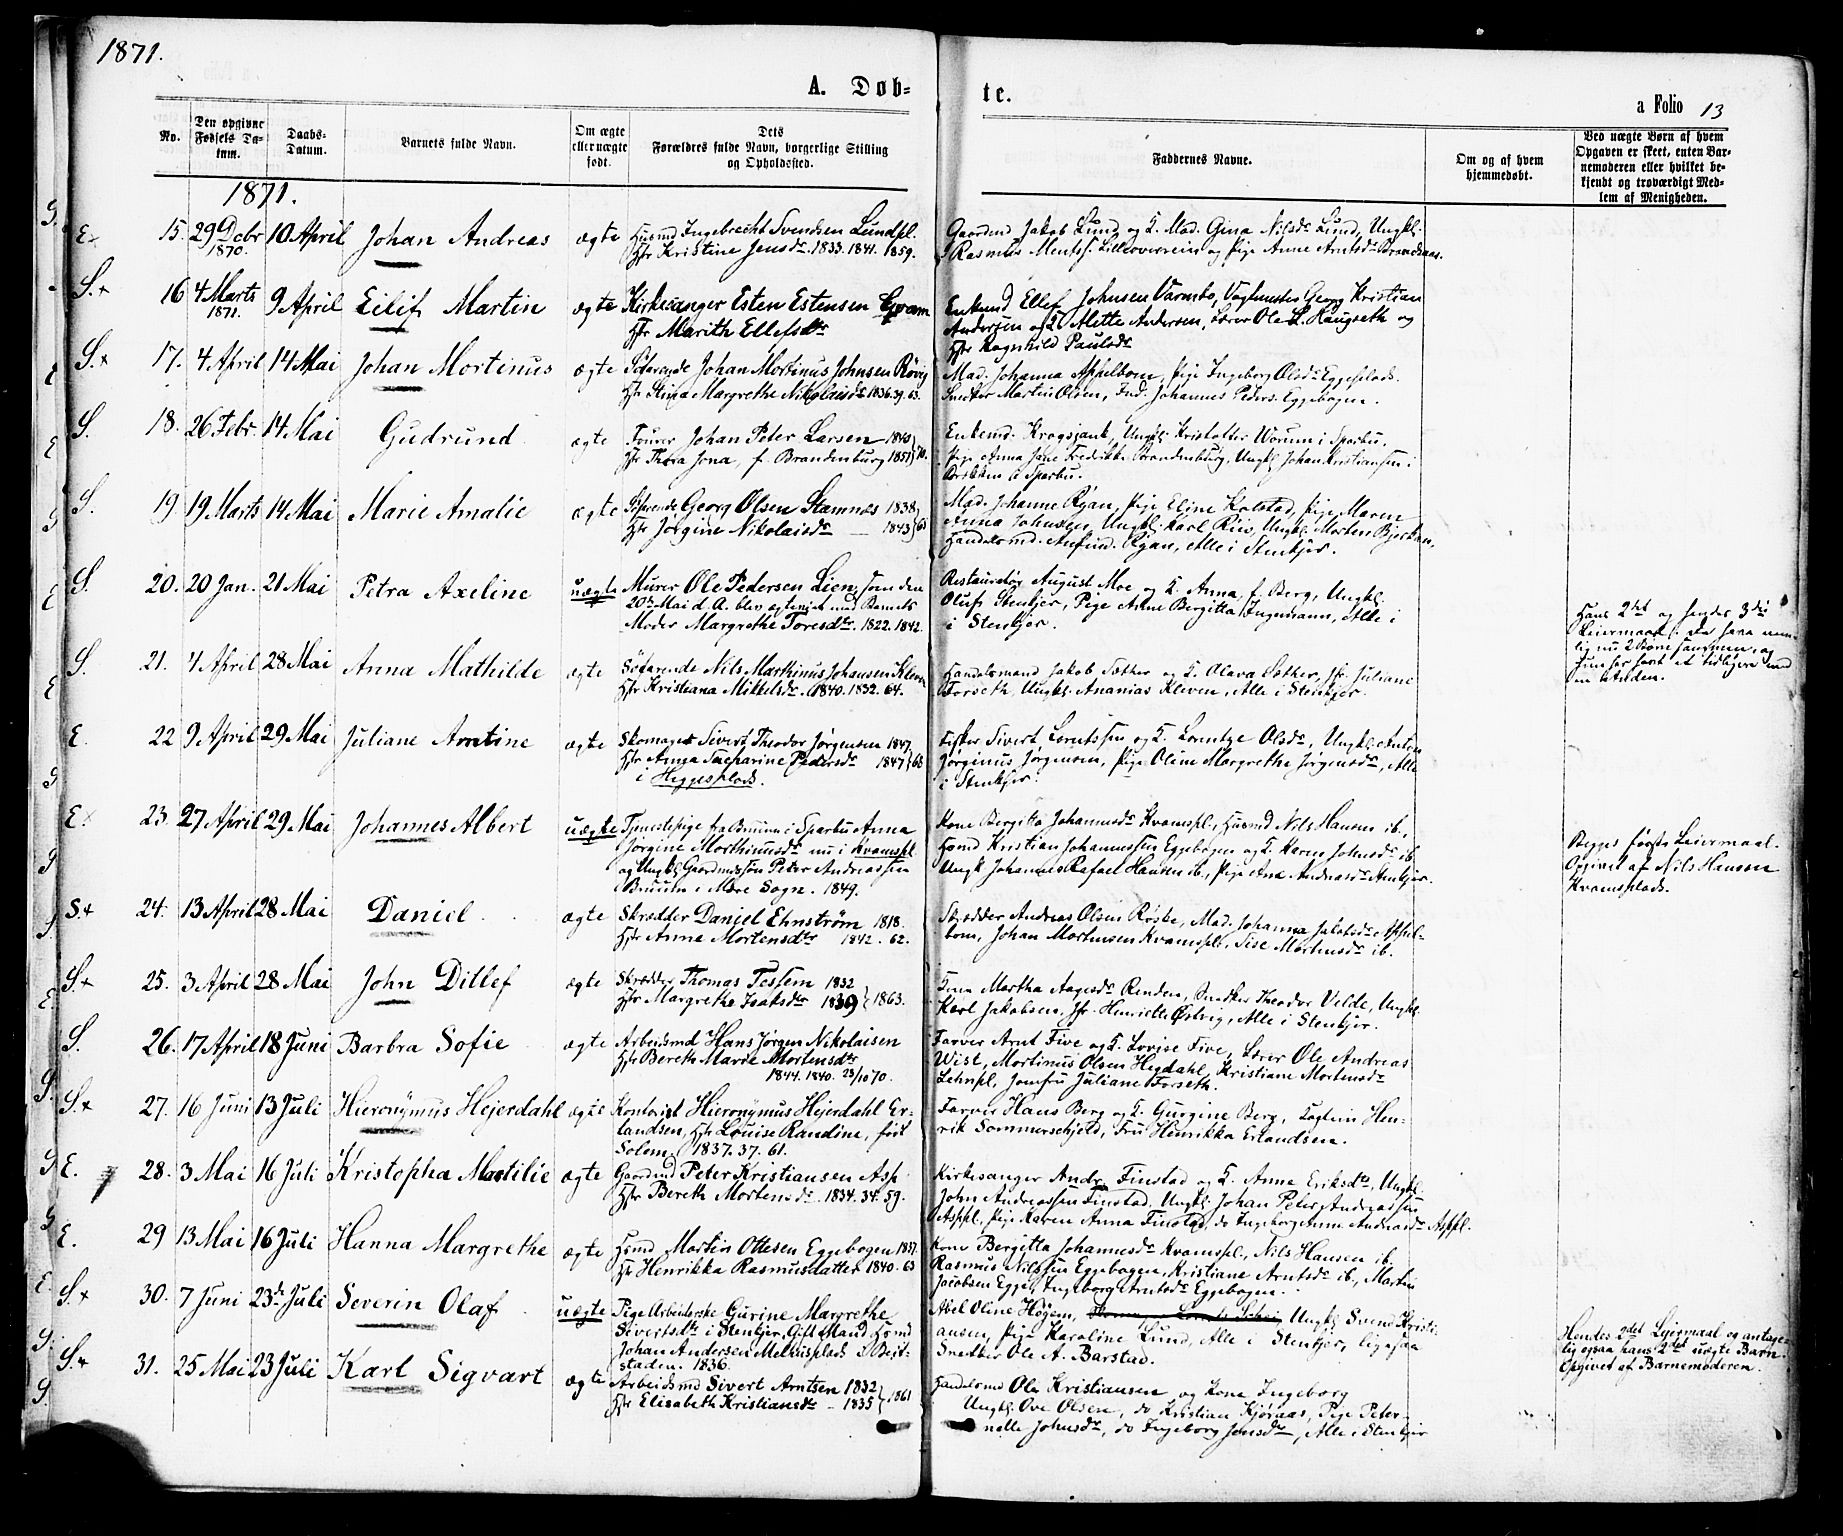 1871.
A. Døb-
te.
a Folio 13
No.
Den opgivne Fødsels Da-tum.
Daabs-Datum.
Barnets fulde Navn.
Om ægte eller uægte født.
Dets Forældres fulde Navn, borgerlige Stilling og Opholdssted.
Faddernes Navne.
Om og af hvem hjemmedøbt.
Ved uægte Børn af hvem Opgaven er skeet, enten Bar-nemoderen eller hvilket be-kjendt og troværdigt Med-lem af Menigheden.
1871.
E. 15. 29 Decbr 1870. 10 April Johan Andreas ægte Husmd Ingebrecht Svendsen Lundpl.
Hstr Kristine Jensdr. 1833. 1841. 1859.
Gaardmd Jakob Lund og K. Mad. Gina Nilsdr Lund, Ungkl.
Rasmus og Pige Anne Arntsdr
S.+ 16 4 Marts 1871. 9 April Eilif Martin ægte Kirkesanger Esten Estensen Kvam
Hstr Marith Ellefsdtr
Enkemd Ellef Johnsen Varmbo, Vagtmester Georg Kristian
Andersen og K. Mette Andersen, Lærer Ole L. Haugseth og
Hstr Ragnhild Paulsdr
S.+ 17. 4 April 14 Mai Johan Mortinus ægte Søfarende Johan Mortinus Johnsen Røvig
Hstr Stina Margrethe Nikolaisdr 1836. 39. 63.
Mad. Johanna Appelbom, Pige Ingeborg Olsdr Eggesplads.
Snedker Martin Olsen, Ind. Johannes Peders. Eggebogen.
S. 18. 26 Febr. 14 Mai Gudrund ægte Fourer Johan Peter Larsen 1840
Hstr Thora Jona, f. Brandenburg 1851 } 70.
Enkemd. Krogsjank, Ungkl. Kristoffer Worum i Sparbu.
Pige Anna Jane Fredrikke Brandenburg, Ungkl Johan Kristiansen i
i Sparbu.
S. 19 19 Marts 14 Mai Marie Amalie ægte Søfarende Georg Olsen Stamnes 1838
Hstr Jørgine Nikolaisdr 1843 } 65
Mad. Johanne Ryan, Pige Eline Kolstad, Pige Maren
Anna Johnsen, Ungkl. Karl Riis, Ungkl. Morten Bjerkan,
Handelsmd. Anfind. Ryan, Alle i Stenkjer.
S. 20. 20 Jan. 21 Mai Petra Axeline uægte Murer Ole Pedersen Lien, som den
20de Mai d. A. blev egteviet med Barnets
Moder Margrethe Toresdr. 1822. 1842.
Restauratør August Moe og K. Anna, f. Berg, Ungkl.
Oluf Stenkjer, Pige Anne Bergitta Ingemann, Alle i
i Stenkjer.
Hans 2det og hendes 3die
Leiermaal. De have nem-
lig nu 2 Børne sammen, og
hun har havt et tidligere med
en Anden.
S. 21. 4 April 28 Mai Anna Mathilde ægte Søfarende Nils Marthinus Johansen Kleven
Hstr Kristiana Mikkelsdr. 1840. 1832. 64.
Handelsmand Jakob Sæther og K. Olava Sæther, Jfr. Juliane
Forseth, Ungkl. Ananias Kleven, Alle i Stenkjer.
E. 22 9 April 29 Mai Juliane Arntine ægte Skomager Sivert Theodor Jørgensen 1847
Hstr Anna Sacharine Pedersdr 1847 } 68
i Heggesplads.
Fisker Sivert Lorentssen og K. Lorentze Olsdr, Ungkl. Anton
Jørginus Jørgensen, Pige Oline Margrethe Jørgensdr, Alle
i Stenkjer.
E. 23. 27 April 29 Mai Johannes Albert uægte Tjenestepige fra Bruun i Sparbu Anna
Jørgine Morthinusdr nu i Kvamspl.
og Ungkl Gaardmdssøn Peter Andreassen
Bruun i Mære Sogn. 1849.
Kone Bergitta Johannesdr Kvamspl., Husmd Nils Hansen ib.,
Husmd Kristian Johannessen Eggebogen og K. Karen Johnsdr ib.
Ungk Johannes Rafael Hansen ib., Pige Ane Andreasdr Stenkjer.
Begges første Leiermaal.
Opgivet af Nils Hansen
Kvamsplads.
S.+ 24. 13 April 28 Mai Daniel ægte Skrædder Daniel Ehnstrøm 1818.
Hstr Anna Mortensdtr 1842. 62.
Skrædder Andreas Olsen Røske, Mad. Johanna Jakobsdr Appel-
bom, Johan Mortensen Kvamspl., Lise Mortensdr ib.
S.+ 25. 3 April 28 Mai John Ditlef ægte Skrædder Thomas Tessem 1832
Hstr Margrethe Isaksdtr 1839 } 1863.
Enke Martha Aagesdr Rinden, Snedker Theodor Velde, Ungkl.
Karl Jakobsen, Jfr. Henriette Østvig, Alle i Stenkjer.
S. 26. 17 April 18 Juni Barbra Sofie ægte Arbeidsmd Hans Jørgen Nikolaisen
Hstr Bereth Marie Mortensdtr
1844. 1840. 23/10 70.
Farver Arnt Five og K. Lovise Five, Lærer Ole Andreas
Wist, Mortinus Olsen Hegdahl, Kristiane Mortensdr
Lehnpl, Jomfru Juliane Forseth.
S.+ 27. 16 Juni 13 Juli Hieronymus Hejerdahl ægte Kontorist Hieronymus Hejerdahl Er-
landsen, Hstr Louise Randine, født
Solem. 1837. 37. 61.
Farver Hans Berg og K. Gurgine Berg, Kaptein Hen-
rik Sommerschield, Fru Henrikka Erlandsen.
E. 28. 3 Mai 16 Juli Kristopha Martilie ægte Gaardmd Peter Kristiansen Asp.
Hstr Bereth Mortensdr. 1834. 34. 59.
Kirkesanger Andr. Finstad og K. Anne Eriksdtr, Ungkl
John Andreassen Finstad, Ungkl Johan Peter Andreassen
Asppl, Pige Karen Anna Finstad, do Ingeborg Anne Andreasdr Asppl.
E. 29 13 Mai 16 Juli Hanna Margrethe ægte Husmd Martin Ottesen Eggebogen 1837.
Hstr Henrikka Rasmusdatter 1840. 63
Kone Bergitta Johannesdr Kvamspl., Nils Hansen ib.
Rasmus Nilssen Eggebogen, Kristiane Arntsdr ib., Martin
Jacobsen Egge, Ingeborg Arntsdr Eggebogen.
S.+ 30. 7 Juni 23de Juli Severin Olaf uægte Pige Arbeiderske Gurine Margrethe
Sivertsdtr i Stenkjer, Gift Mand Husmd
Johan Andersen Melhusplads i Beit-
staden. 1836.
Abel Oline Høgem, Ungkl Svend Kristi-
ansen, Pige Karoline Lund, Alle i Stenkjer, ligesaa
Snedker Ole A. Barstad.
Hendes 2det Leiermaal og antage-
lig ogsaa hans 2det uægte Barn.
Opgivet af Barnemoderen.
S.+ 31. 25 Mai 23 Juli Karl Sigvart ægte Arbeidsmd Sivert Arntsen 1832
Hstr Elisabeth Kristiansdr 1835 } 1861
Handelsmd Ole Kristiansen og Kone Ingeborg
Ungkl. Ove Olsen, do Kristian Kjønaas, Pige Peter-
nelle Johnsdr, do Ingeborg Jensdtr, Alle i Stenkjer